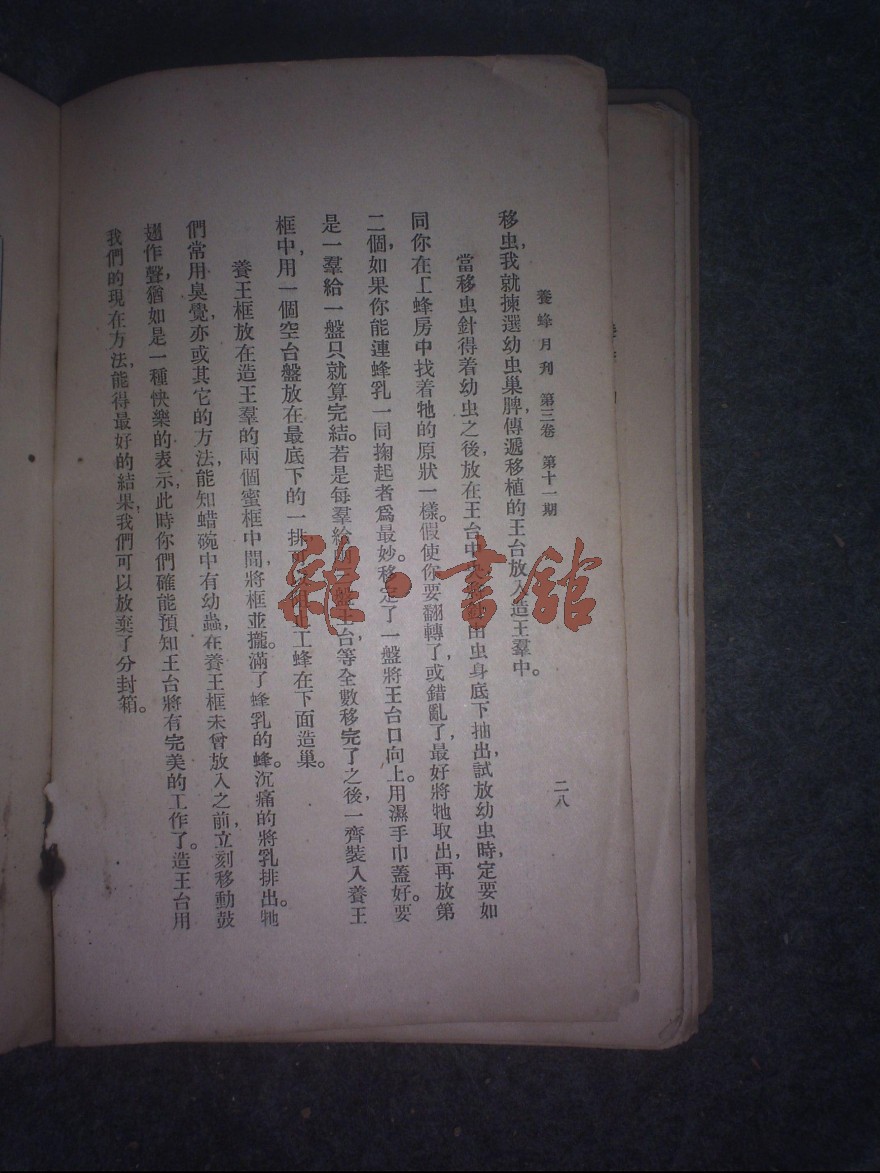 養蜂月刊 第三卷 第十一期 二八
移虫,我就揀選幼虫巢脾,傳遞移植的王台放入造王羣中。
當移虫針得着幼虫之後,放在王台中 由虫身底下抽出,試放幼虫時定要如
同你在工蜂房中找着牠的原狀一樣。假使你要翻轉了,或錯亂了,最好將牠取出,再放第
二個,如果你能連蜂乳一同掬起者爲最妙。移定了一盤將王台口向上。用濕手巾蓋好。要
是一羣給一盤只就算完結。若是每羣給 盤王台,等全數移完了之後,一齊裝入養王
框中,用一個空台盤放在最底下的一排, 工蜂在下面造巢。
養王框放在造王羣的兩個蜜框中間,將框並攏。滿了蜂乳的蜂。沉痛的將乳排出。牠
們常用臭覺,亦或其它的方法,能知蜡碗中有幼蟲,在養王框未曾放入之前,立刻移動鼓
翅作聲,猶如是一種快樂的表示,此時你們確能預知王台將有完美的工作了。造王台用
我們的現在方法,能得最好的結果,我們可以放棄了分封箱。
雜·書館